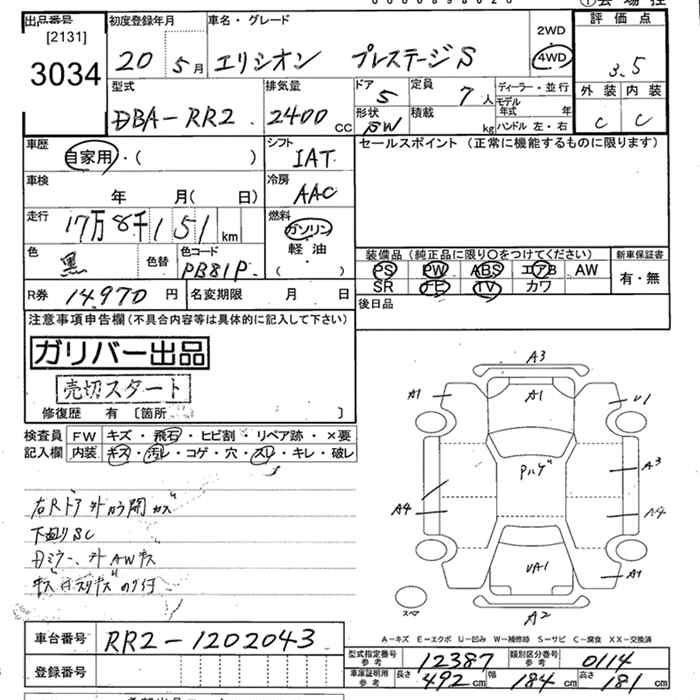 出品番号
[2131]
3034
初度登録年月
20 5月
車名・グレード
エリシオン プレステージS
2WD
4WD
評価点
3.5
外装 内装
C C
型式
DBA-RR2
排気量
2400 CC
ドア
5
形状
定員
7人
積載
kg
ディーラー・並行
モデル年式 年
ハンドル 左・右
車歴
自家用・( )
シフト
IAT
セールスポイント (正常に機能するものに限ります)
車検
年 月( 日)
冷房
AAC
走行
17万8千151km
燃料
ガソリン
軽油
( ・ )
色
黒
色替
色コード
PB81P
装備品 (純正品に限り〇をつけてください)
PS PW ABS エアB AW
SR ナビ TV カワ
新車保証書
有・無
R券 14,970円
名変期限 月 日
後日品
注意事項申告欄(不具合内容等は具体的に記入して下さい)
ガリバー出品
売切スタート
修復歴 有 〔箇所 〕
検査員記入欄
FW キズ・飛石・ヒビ割・リペア跡・×要
内装 キズ・汚レ・コゲ・穴・スレ・キレ・破レ
右Rドア外から開かず
下廻りSC
A3
A1
A1
U1
Pルーフ
A3
A4
A4
UA1
A1
スペア
A2
A-キズ E-エクボ U-凹み W-補修跡 S-サビ C-腐食 XX-交換済
車台番号 RR2-1202043
登録番号
型式指定番号 参考 12387
類別区分番号 参考 0114
車庫証明用 参考 長さ 492cm 幅 184cm 高さ 181cm